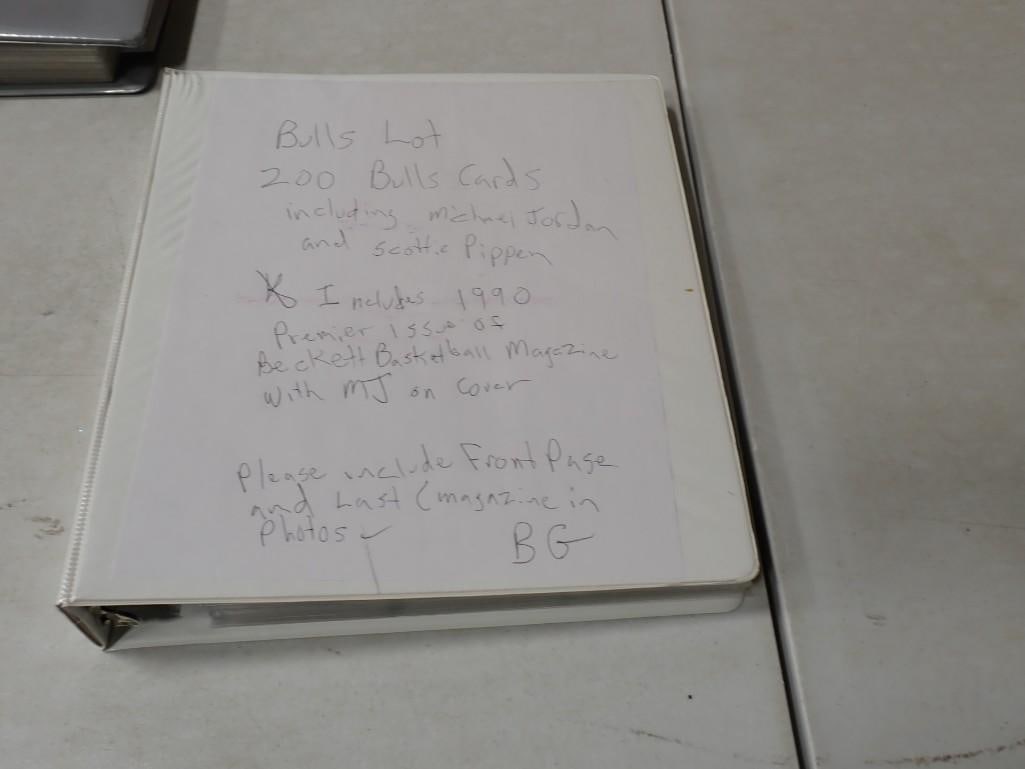 Bulls Lot
200 Bulls Cards
including Michael Jordan
and Scottie Pippen
* Includes 1990
Premier Issue of
Beckett Basketball Magazine
with MJ on Cover
Please include Front Page
and Last (magazine in
Photos ✓
BG